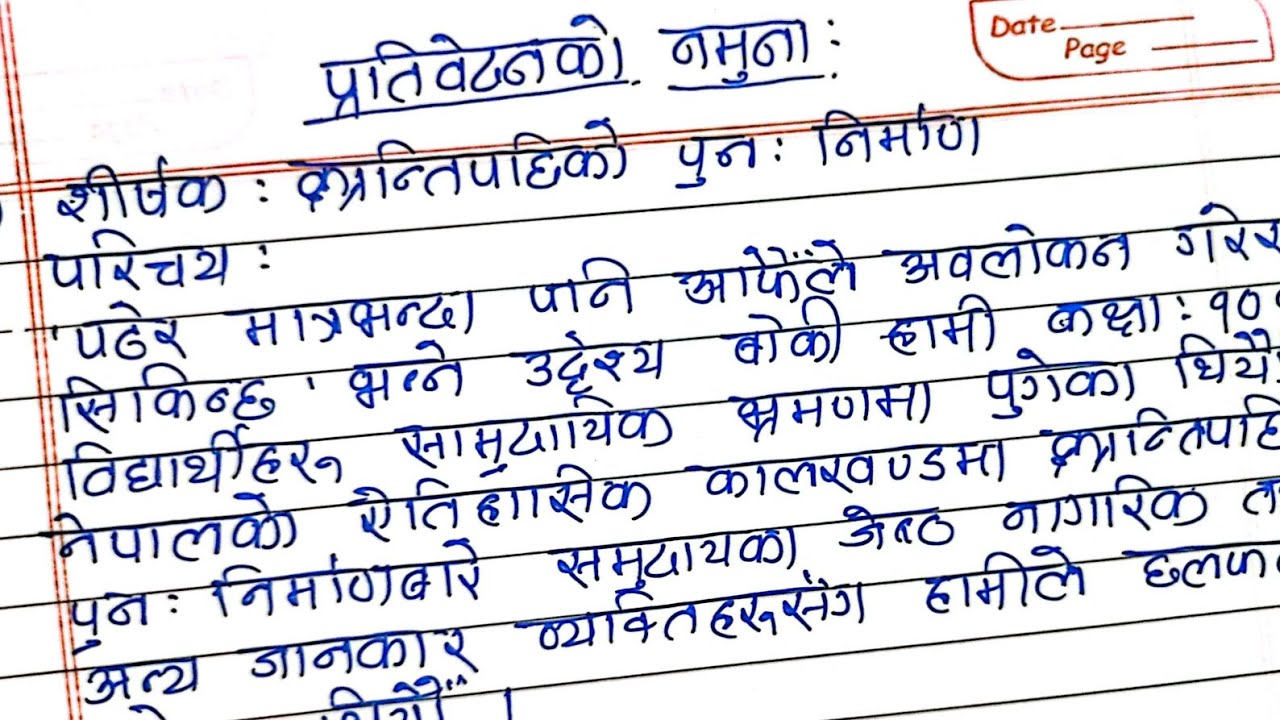 Date
Page
प्रतिवेदनको नमुना :
शीर्षक : क्रान्तिपछिको पुन: निर्माण
परिचय :
'पढेर मात्रभन्दा पनि आफैँले अवलोकन गरेर
सिकिन्छ' भन्ने उद्देश्य बोकी हामी कक्षा: १०
विद्यार्थीहरू सामुदायिक भ्रमणमा पुगेका थियौँ
नेपालको ऐतिहासिक कालखण्डमा क्रान्तिपछि
पुन: निर्माणबारे समुदायका जेष्ठ नागरिक
अन्य जानकार व्यक्तिहरूसँग हामीले